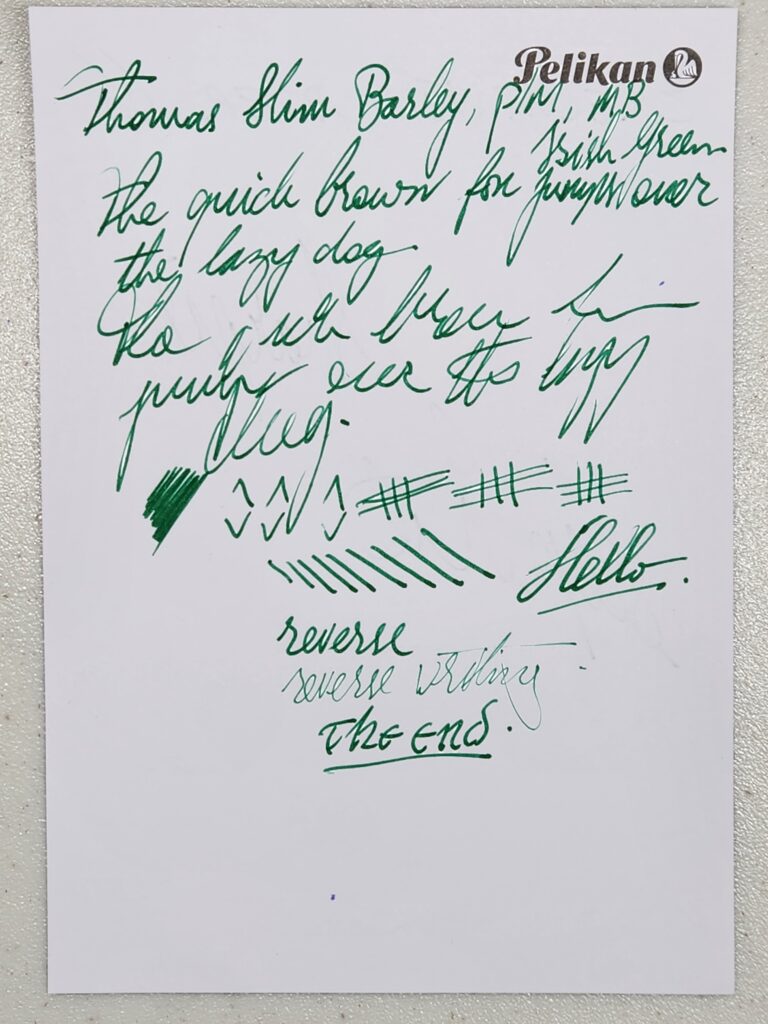 Pelikan
Thomas Slim Barley, PM, MB
Irish Green
the quick brown fox jumps over
the lazy dog.
The quick brown fox
jumps over the lazy
dog.
Hello.
reverse
reverse writing.
The end.